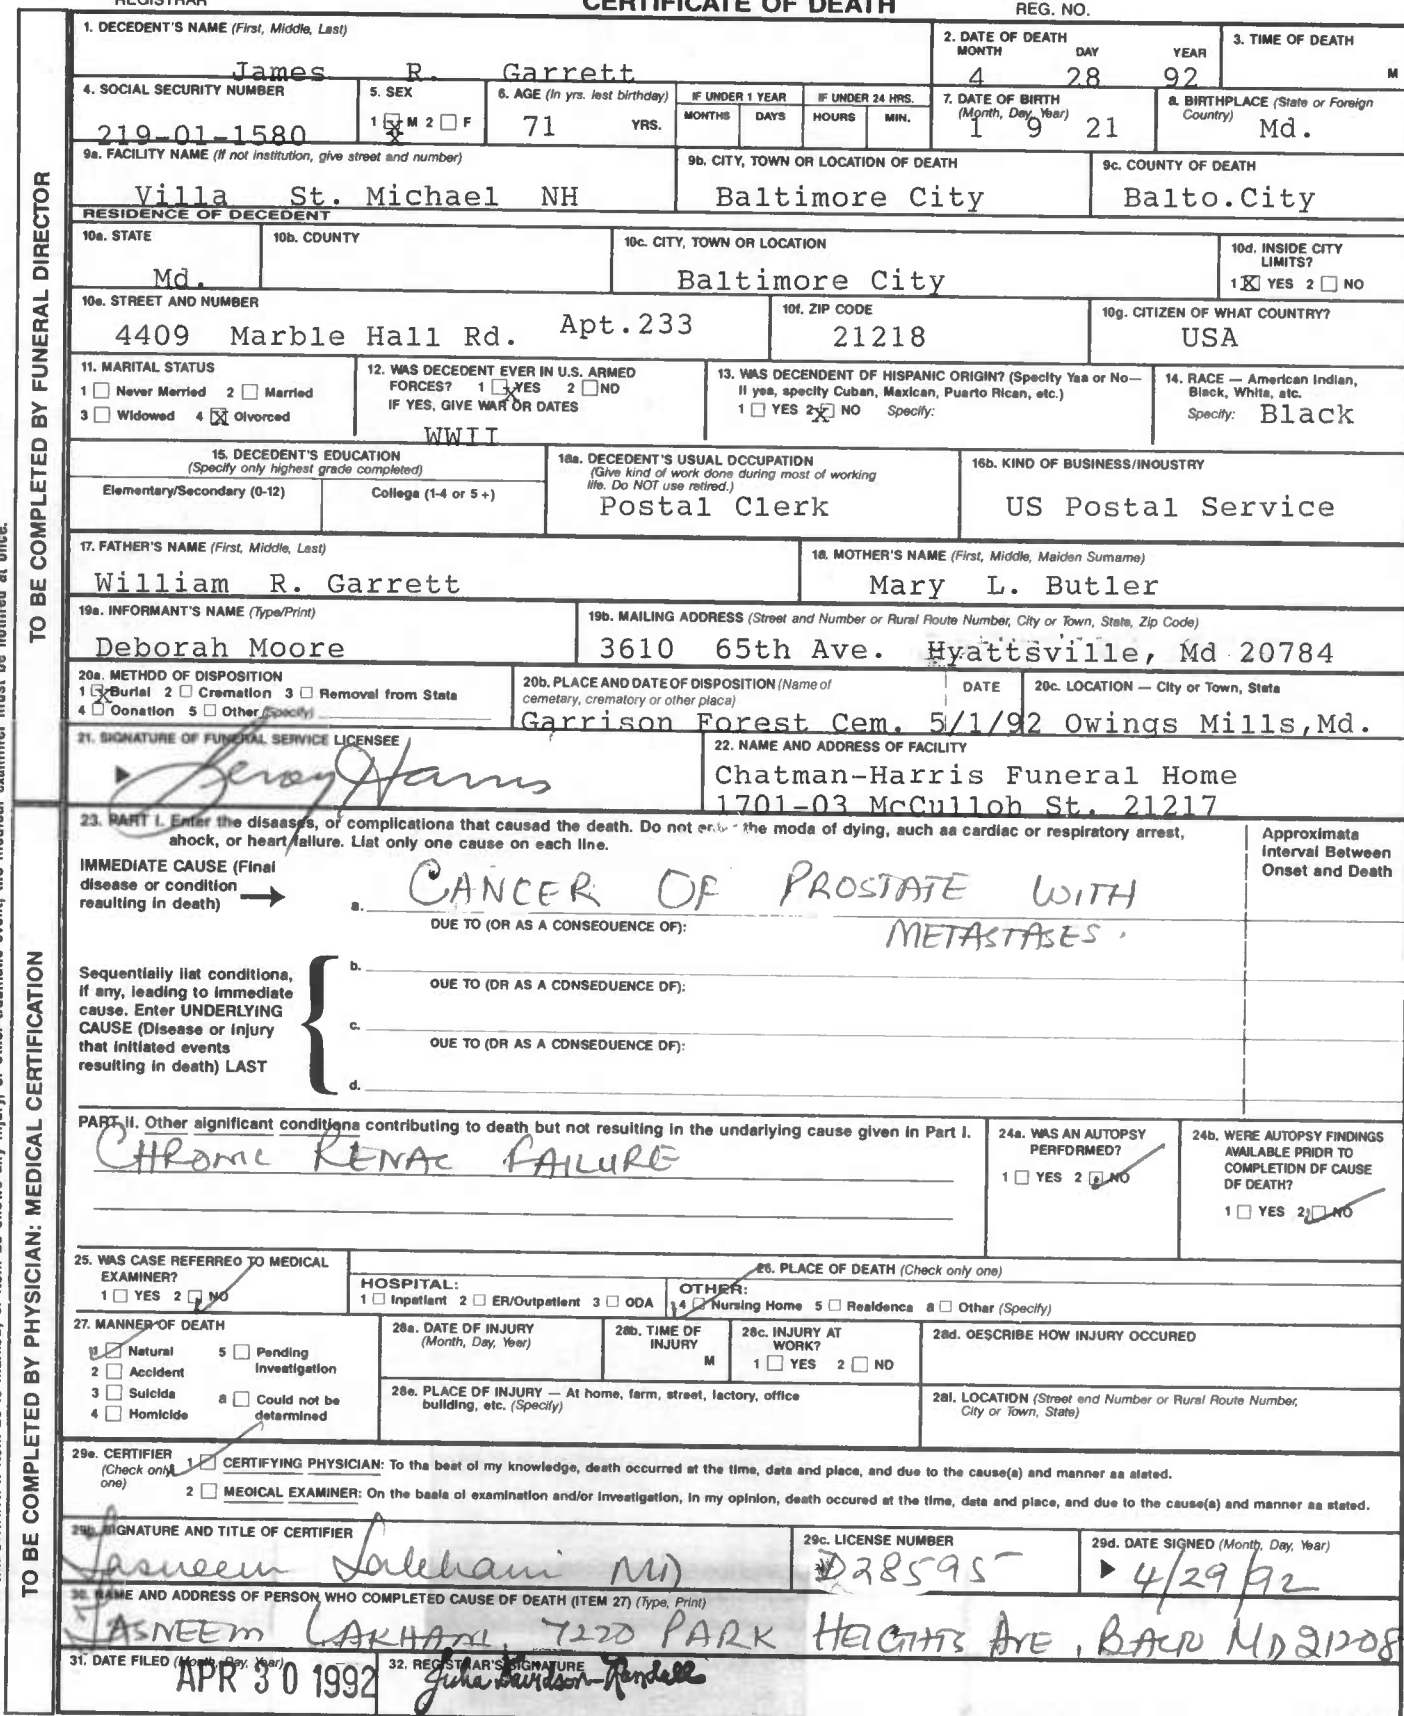 REGISTRAR CERTIFICATE OF DEATH REG. NO.
1. DECEDENT'S NAME (First, Middle, Last)
James R. Garrett
2. DATE OF DEATH
MONTH DAY YEAR
4 28 92
3. TIME OF DEATH
M
4. SOCIAL SECURITY NUMBER
219-01-1580
5. SEX
1 X M 2 F
6. AGE (In yrs. last birthday)
71 YRS.
IF UNDER 1 YEAR
MONTHS DAYS
IF UNDER 24 HRS.
HOURS MIN.
7. DATE OF BIRTH
(Month, Day, Year)
1 9 21
8. BIRTHPLACE (State or Foreign
Country)
Md.
9a. FACILITY NAME (If not institution, give street and number)
Villa St. Michael NH
9b. CITY, TOWN OR LOCATION OF DEATH
Baltimore City
9c. COUNTY OF DEATH
Balto.City
RESIDENCE OF DECEDENT
10a. STATE
Md.
10b. COUNTY
10c. CITY, TOWN OR LOCATION
Baltimore City
10d. INSIDE CITY
LIMITS?
1 X YES 2 NO
10e. STREET AND NUMBER
4409 Marble Hall Rd. Apt.233
10f. ZIP CODE
21218
10g. CITIZEN OF WHAT COUNTRY?
USA
11. MARITAL STATUS
1 Never Married 2 Married
3 Widowed 4 X Divorced
12. WAS DECEDENT EVER IN U.S. ARMED
FORCES? 1 X YES 2 NO
IF YES, GIVE WAR OR DATES
WWII
13. WAS DECENDENT OF HISPANIC ORIGIN? (Specify Yes or No—
If yes, specify Cuban, Mexican, Puerto Rican, etc.)
1 YES 2 X NO Specify:
14. RACE — American Indian,
Black, White, etc.
Specify: Black
15. DECEDENT'S EDUCATION
(Specify only highest grade completed)
Elementary/Secondary (0-12) College (1-4 or 5+)
16a. DECEDENT'S USUAL OCCUPATION
(Give kind of work done during most of working
life. Do NOT use retired.)
Postal Clerk
16b. KIND OF BUSINESS/INDUSTRY
US Postal Service
17. FATHER'S NAME (First, Middle, Last)
William R. Garrett
18. MOTHER'S NAME (First, Middle, Maiden Surname)
Mary L. Butler
19a. INFORMANT'S NAME (Type/Print)
Deborah Moore
19b. MAILING ADDRESS (Street and Number or Rural Route Number, City or Town, State, Zip Code)
3610 65th Ave. Hyattsville, Md 20784
20a. METHOD OF DISPOSITION
1 X Burial 2 Cremation 3 Removal from State
4 Donation 5 Other (Specify)
20b. PLACE AND DATE OF DISPOSITION (Name of DATE
cemetary, crematory or other place)
Garrison Forest Cem. 5/1/92
20c. LOCATION — City or Town, State
Owings Mills,Md.
21. SIGNATURE OF FUNERAL SERVICE LICENSEE
Leroy Harris
22. NAME AND ADDRESS OF FACILITY
Chatman-Harris Funeral Home
1701-03 McCulloh St. 21217
TO BE COMPLETED BY FUNERAL DIRECTOR
23. PART I. Enter the diseases, or complications that caused the death. Do not enter the mode of dying, such as cardiac or respiratory arrest,
shock, or heart failure. List only one cause on each line.
Approximate
Interval Between
Onset and Death
IMMEDIATE CAUSE (Final
disease or condition
resulting in death)
a. CANCER OF PROSTATE WITH
METASTASES.
DUE TO (OR AS A CONSEQUENCE OF):
Sequentially list conditions,
if any, leading to immediate
cause. Enter UNDERLYING
CAUSE (Disease or injury
that initiated events
resulting in death) LAST
b.
DUE TO (OR AS A CONSEQUENCE OF):
c.
DUE TO (OR AS A CONSEQUENCE OF):
d.
PART II. Other significant conditions contributing to death but not resulting in the underlying cause given in Part I.
CHRONIC RENAL FAILURE
24a. WAS AN AUTOPSY
PERFORMED?
1 YES 2 NO
24b. WERE AUTOPSY FINDINGS
AVAILABLE PRIOR TO
COMPLETION OF CAUSE
OF DEATH?
1 YES 2 NO
25. WAS CASE REFERRED TO MEDICAL
EXAMINER?
1 YES 2 NO
26. PLACE OF DEATH (Check only one)
HOSPITAL:
1 Inpatient 2 ER/Outpatient 3 DOA
OTHER:
4 Nursing Home 5 Residence 6 Other (Specify)
27. MANNER OF DEATH
1 Natural 5 Pending
2 Accident Investigation
3 Suicide 6 Could not be
4 Homicide determined
28a. DATE OF INJURY
(Month, Day, Year)
28b. TIME OF
INJURY
M
28c. INJURY AT
WORK?
1 YES 2 NO
28d. DESCRIBE HOW INJURY OCCURED
28e. PLACE OF INJURY — At home, farm, street, factory, office
building, etc. (Specify)
28f. LOCATION (Street and Number or Rural Route Number,
City or Town, State)
29a. CERTIFIER
(Check only
one)
1 CERTIFYING PHYSICIAN: To the best of my knowledge, death occurred at the time, date and place, and due to the cause(s) and manner as stated.
2 MEDICAL EXAMINER: On the basis of examination and/or investigation, in my opinion, death occured at the time, date and place, and due to the cause(s) and manner as stated.
29b. SIGNATURE AND TITLE OF CERTIFIER
Tasneem Lakhani MD
29c. LICENSE NUMBER
D28595
29d. DATE SIGNED (Month, Day, Year)
4/29/92
30. NAME AND ADDRESS OF PERSON WHO COMPLETED CAUSE OF DEATH (ITEM 27) (Type, Print)
TASNEEM LAKHANI, 7220 PARK HEIGHTS AVE, BALTO MD 21208
31. DATE FILED (Month, Day, Year)
APR 30 1992
32. REGISTRAR'S SIGNATURE
Julia Davidson-Randall
TO BE COMPLETED BY PHYSICIAN: MEDICAL CERTIFICATION